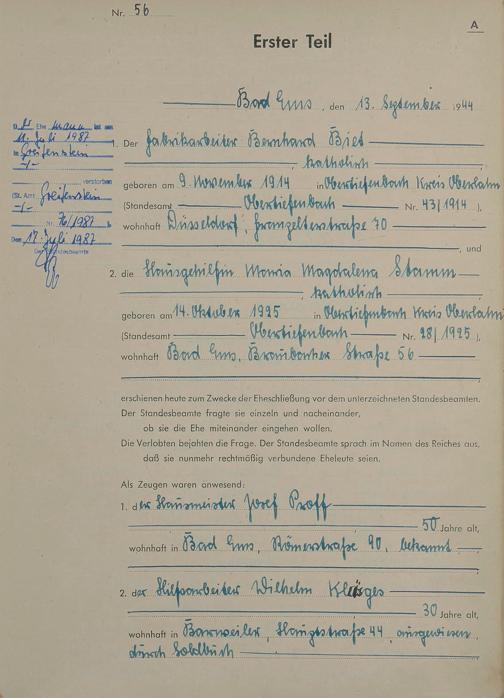 Nr. 56
A
Erster Teil
Bad Ems, den 13. September 1944
1. Der Fabrikarbeiter Bernhard Biet
katholisch
geboren am 9. November 1914 in Obertiefenbach Kreis Oberlahn
(Standesamt Obertiefenbach Nr. 43/1914),
wohnhaft Düsseldorf, 70
, und
2. die Hausgehilfin Maria Magdalena Stamm
katholisch
geboren am 14. Oktober 1925 in Obertiefenbach Kreis Oberlahn
(Standesamt Obertiefenbach Nr. 28/1925),
wohnhaft Bad Ems, Braubacher Straße 56
erschienen heute zum Zwecke der Eheschließung vor dem unterzeichneten Standesbeamten.
Der Standesbeamte fragte sie einzeln und nacheinander,
ob sie die Ehe miteinander eingehen wollen.
Die Verlobten bejahten die Frage. Der Standesbeamte sprach im Namen des Reiches aus,
daß sie nunmehr rechtmäßig verbundene Eheleute seien.
Als Zeugen waren anwesend:
1. der Hausmeister Josef Proff
50 Jahre alt,
wohnhaft in Bad Ems, Römerstraße 90, bekannt
2. der Hilfsarbeiter Wilhelm Kläsges
30 Jahre alt,
wohnhaft in Barweiler, Hauptstraße 44, ausgewiesen
durch Soldbuch
Ehemann ist am
11. Juli 1987
in Greifenstein
-/-
verstorben
(St. Amt Greifenstein
-/-
Nr. 76/1987)
Den 17. Juli 1987
Der Standesbeamte